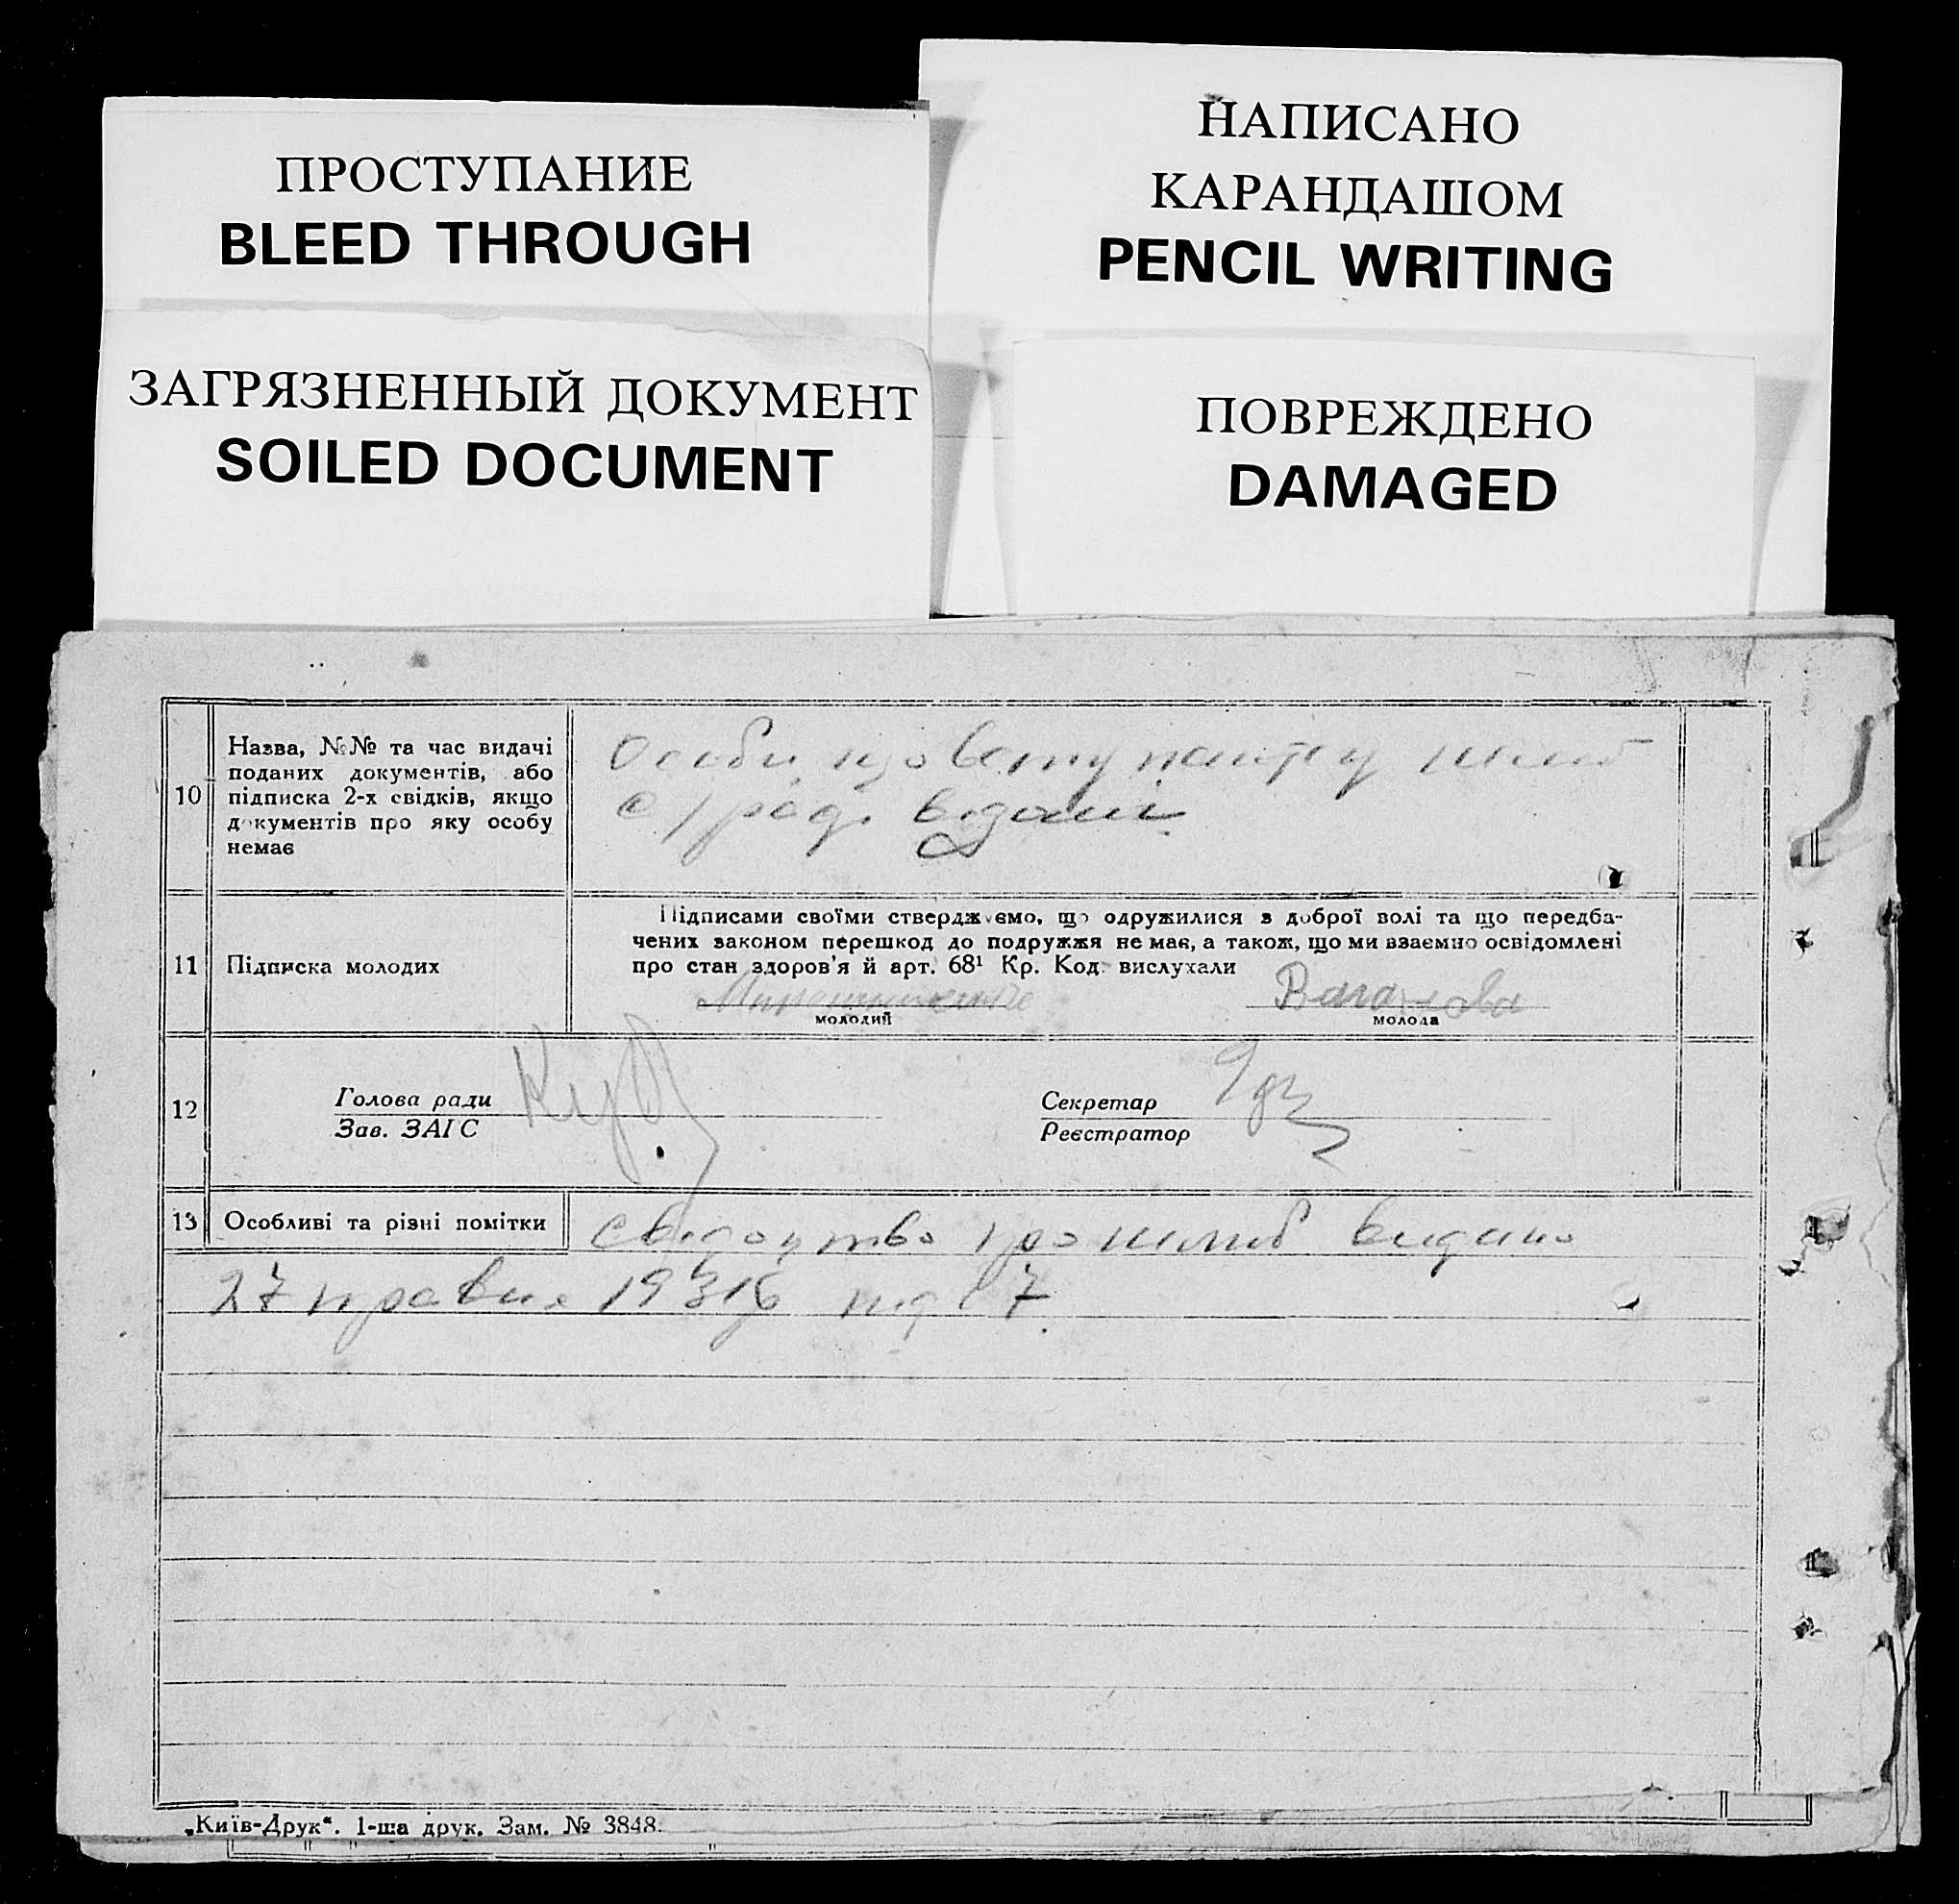 ПРОСТУПАНИЕ
BLEED THROUGH
НАПИСАНО
КАРАНДАШОМ
PENCIL WRITING
ЗАГРЯЗНЕННЫЙ ДОКУМЕНТ
SOILED DOCUMENT
ПОВРЕЖДЕНО
DAMAGED
10
Назва, №№ та час видачі
поданих документів, або
підписка 2-х свідків, якщо
документів про яку особу
немає
Особи що вступають у шлюб
с/раді відомі
11
Підписка молодих
Підписами своїми стверджуємо, що одружилися з доброї волі та що передба-
чених законом перешкод до подружжя не має, а також, що ми взаємно освідомлені
про стан здоров'я й арт. 68¹ Кр. Код. вислухали
молодий
молода
12
Голова ради
Зав. ЗАГС
Секретар
Реєстратор
13
Особливі та різні помітки
Свідоцтво про шлюб видано
27 травня 193 під 7
„Київ-Друк“. 1-ша друк. Зам. № 3848.